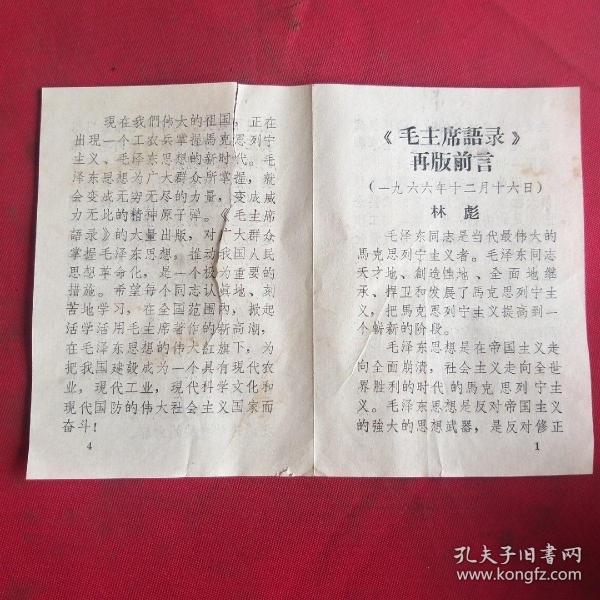 現在我們伟大的祖国，正在
出現一个工农兵掌握馬克思列宁
主义、毛泽东思想的新时代。毛
泽东思想为广大群众所掌握，就
会变成无穷无尽的力量，变成威
力无比的精神原子弹。《毛主席
語录》的大量出版，对广大群众
掌握毛泽东思想，推动我国人民
思想革命化，是一个极为重要的
措施。希望每个同志认眞地、刻
苦地学习，在全国范围內，掀起
活学活用毛主席著作的新高潮，
在毛泽东思想的伟大紅旗下，为
把我国建設成为一个具有現代农
业，現代工业，現代科学文化和
現代国防的伟大社会主义国家而
奋斗！
4
《毛主席語录》
再版前言
（一九六六年十二月十六日）
林彪
毛泽东同志是当代最伟大的
馬克思列宁主义者。毛泽东同志
天才地、創造性地、全面地继
承、捍卫和发展了馬克思列宁主
义，把馬克思列宁主义提高到一
个嶄新的阶段。
毛泽东思想是在帝国主义走
向全面崩溃，社会主义走向全世
界胜利的时代的馬克思列宁主
义。毛泽东思想是反对帝国主义
的強大的思想武器，是反对修正
1
孔夫子旧书网
www.kongfz.com